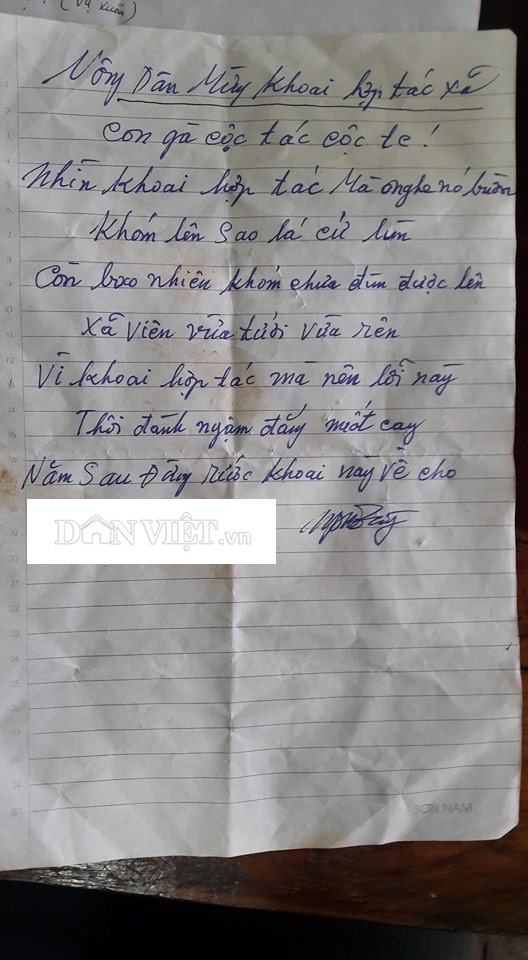 (Vụ xuân)
Nông Dân Mừng khoai hợp tác xã
Con gà cộc tác cộc te!
Nhìn khoai hợp tác Mà nghe nó buồn
Khóm lên Sao lá cứ lùn
Còn bao nhiên khóm chưa đùn được lên
Xã viên vừa tưới vừa rên
Vì khoai hợp tác mà nên lỗi này
Thôi đành ngậm đắng muốt cay
Năm Sau Đừng rước khoai này về cho
DÂN VIỆT.vn
SƠN NAM